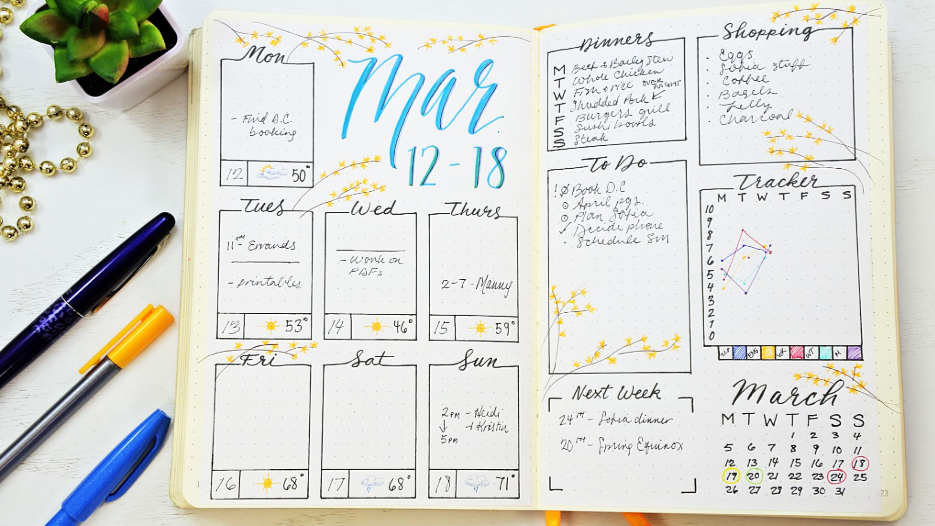 Mon
- Find D.C.
booking
12 50°
Mar
12-18
Tues
11am Errands
- printables
13 53°
Wed
- Work on
PDFs
14 46°
Thurs
2-7-Manny
15 59°
Fri
16 68°
Sat
17 68°
Sun
2pm - Heidi
↓ + Kristin
5pm
18 71°
1
Dinners
M Beef + Barley Stew
T Whole Chicken
W Fish + rice
T Shredded Pork
F Burgers grill
S Sushi bowls
S Steak
To Do
! Book D.C
April pgs.
Plan Sofia
✓ Decide phone
· Schedule SM
Next Week
24th - Sofia dinner
20th - Spring Equinox
Shopping
· Eggs
· Sofia stuff
· Coffee
· Bagels
· Jelly
· Charcoal
Tracker
M T W T F S S
10
9
8
7
6
5
4
3
2
1
0
March
M T W T F S S
1 2 3 4
5 6 7 8 9 10 11
12 13 14 15 16 17 18
19 20 21 22 23 24 25
26 27 28 29 30 31
23